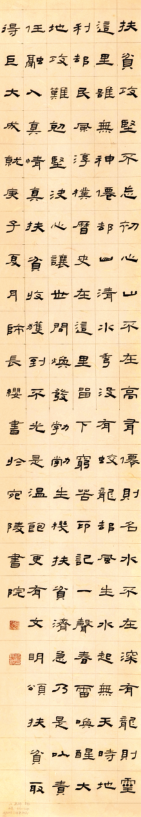 扶貧攻堅不忘初心山不在高有僊則名水不在深有龍則靈
這里雖無神僊卻山清水秀沒有蛟龍卻風生水起天時地
利都民風淳樸曆史在這里留下窮苦印記一聲春雷喚醒大
地攻難勊堅決心讓世間煥發勃勃生機扶貧濟急乃是以責
任融入真情真扶貧收獲到不光是溫飽更有文明頌扶貧取
得巨大成就庚子夏月師長櫻書於宛陵書院